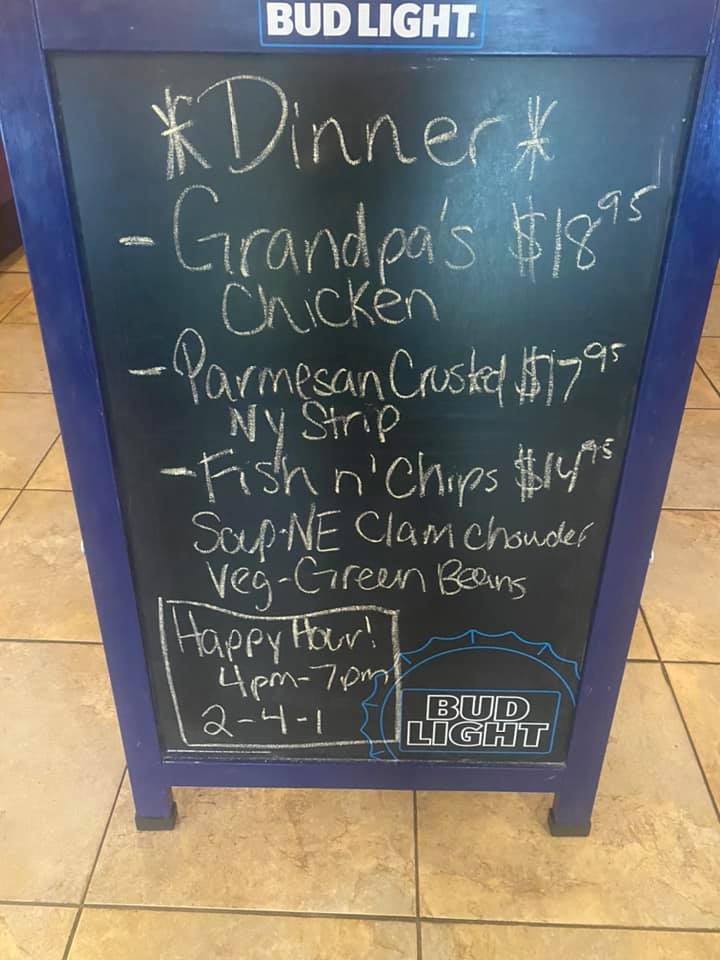 BUD LIGHT.
*Dinner*
- Grandpa's $18.95
Chicken
- Parmesan Crusted $17.95
NY Strip
- Fish n' Chips $14.95
Soup-NE Clam Chowder
Veg-Green Beans
Happy Hour!
4pm-7pm
2-4-1
BUD
LIGHT